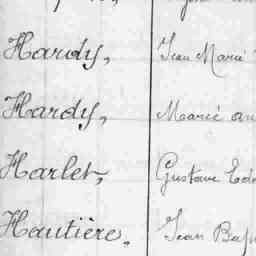 Hardy, Jean Marie
Hardy, Marie
Harlet, Gustave
Hautière, Jean